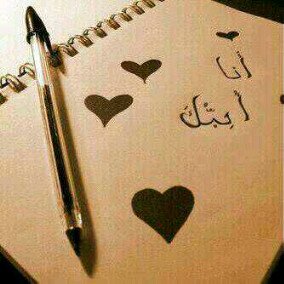 أنا
أحِبُّكَ